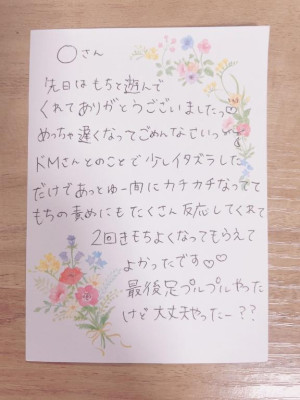 ○さん
先日はもちと遊んで
くれてありがとうございましたっ♡
めっちゃ遅くなってごめんなさいっ
ドMさんとのことで少しイタズラした
だけであっとゆー間にカチカチなってて
もちの責めにもたくさん反応してくれて
2回きもちよくなってもらえて
よかったです♡♡
最後足プルプルやった
けど大丈夫やったー??